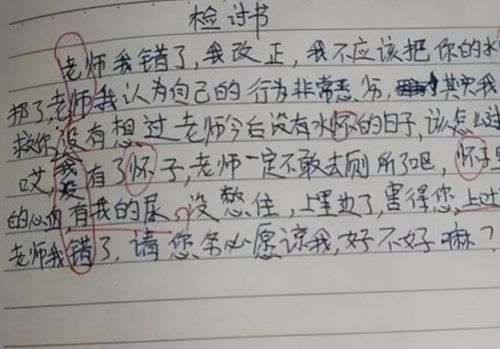 检讨书
老师我错了,我改正,我不应该把你的
了,老师我认为自己的行为非常恶劣,其实我
没有想过老师今后没有水怀的日子,该怎么过
哎,我没有了怀子,老师一定不敢去厕所了吧,怀子里
的心血,有我的尿。没憋住,上里边了,害得您,上吐
老师我错了,请您务必愿谅我,好不好嘛?